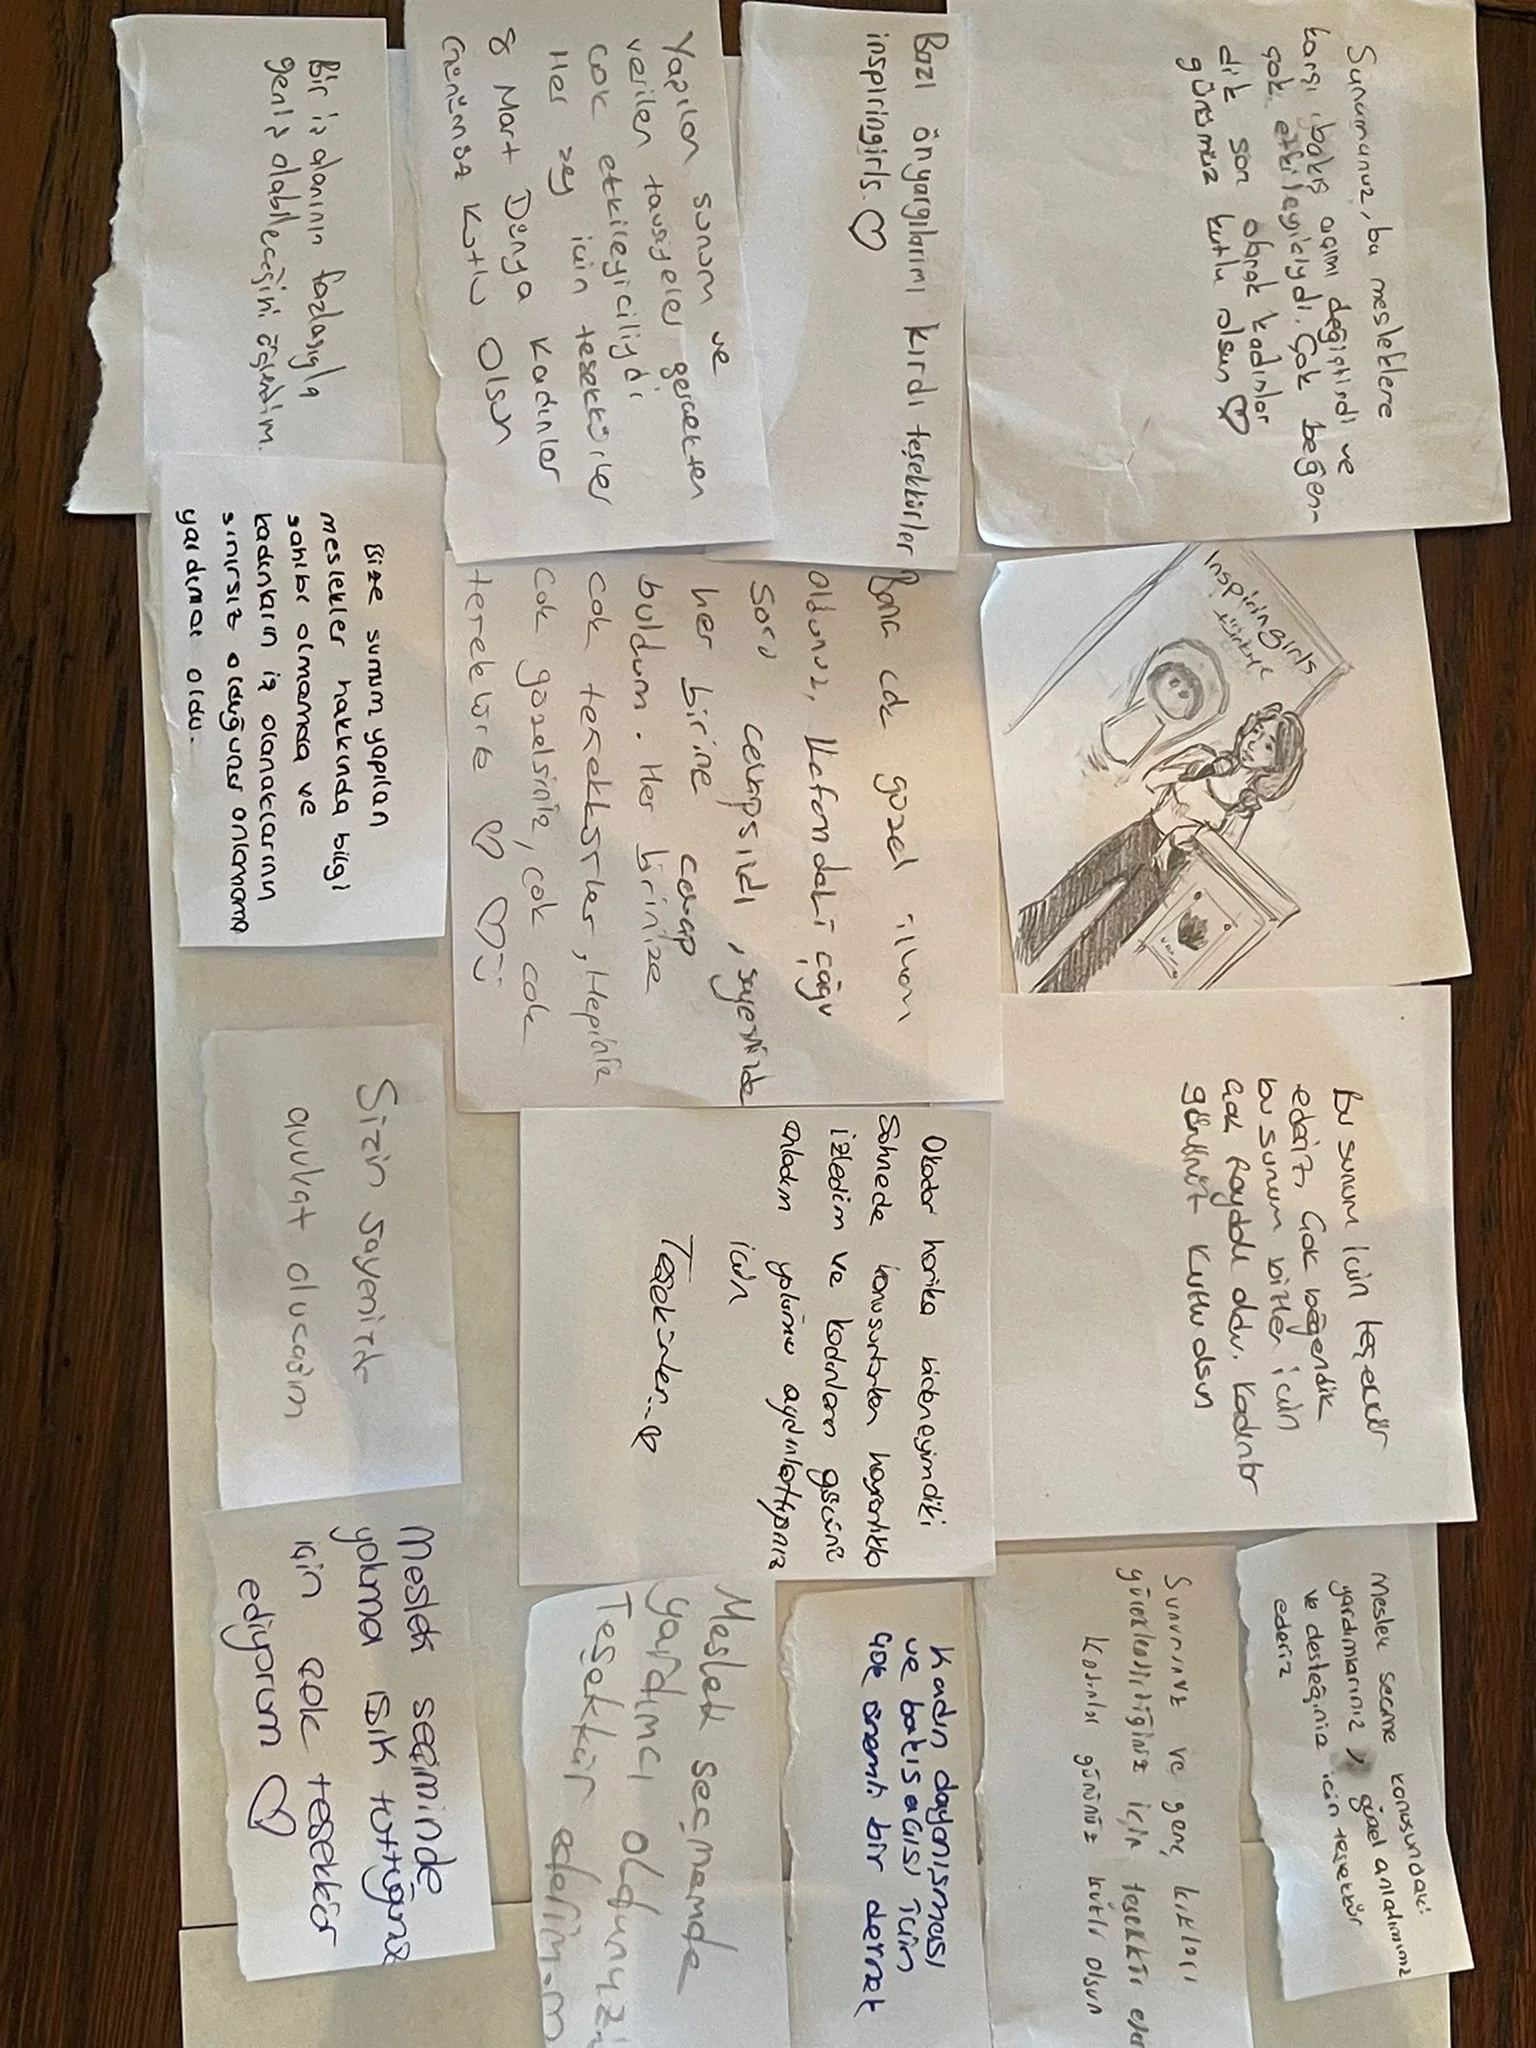 Sunumunuz, bu mesleklere
karşı bakış açımı değiştirdi ve
çok etkileyiciydi. Çok beğen-
dik son olarak kadınlar
günümüz kutlu olsun ♡
Inspiringirls
türkiye
Bu sunum icin teşekkür
ederiz, Çok beğendik
bu sunum bizler icin
çok faydalı oldu. Kadınlar
gününüz kutlu olsun
Meslek secme konusundaki
yardımlarınız, güzel anlatımınız
ve desteğiniz icin teşekkür
ederiz
Sunumunuz ve genç kızları
yüreklendirdiğiniz için teşekkür eder
Kadınlar gününüz kutlu olsun
Bazı önyargılarımı kırdı teşekkürler
inspiringirls. ♡
Bana cok güzel ilham
oldunuz, Kafamdaki çoğu
soru cevapsızdı, sayenizde
her birine cevap
buldum. Her birinize
cok teşekkürler, Hepiniz
cok güzelsiniz, cok cok
♡ ♡ :)
Okadar harika bideneyimdiki
Sahnede konusurken hayranlıkla
izledim ve kadınların gücünü
anladım yolumu aydınlattıgınız
icin
Teşekkürler.. ♡
Kadın dayanışması
ve bakış acısı icin
çok önemli bir dernek
Yapılan sunum ve
verilen tavsiyeler gercekten
cok etkileyiciliydi
Her şey icin teşekkürler
8 Mart Dünya Kadınlar
Gününüz Kutlu Olsun
Meslek seçmemde
yardımcı oldunuz!
Teşekkür ederim.
Bir iş alanının fazlasıyla
geniş olabileceğini öğrendim.
Bize sunum yapılan
meslekler hakkında bilgi
sahibi olmamda ve
kadınların iş olanaklarının
sınırsız olduğunu anlamama
yardımcı oldu.
Sizin sayenizde
avukat olucağım
Meslek seçiminde
yoluma ışık tuttuğunuz
için çok teşekkür
ediyorum ♡